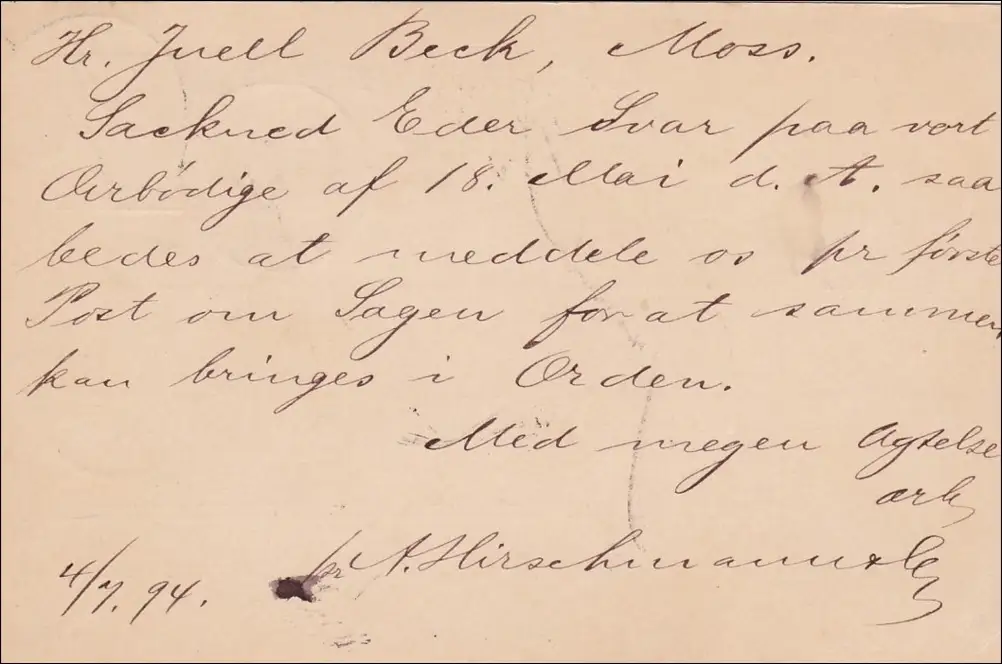 Hr. Juell Beck, Moss.
Sackned Eder Svar paa vort
Ærbödige af 18. Mai d. A. saa
bedes at meddele os pr förste
Post om Sagen for at sammen
kan bringes i Orden.
Med megen Agtelse
ærb
4/7. 94. pr A. Hirschmann & Co